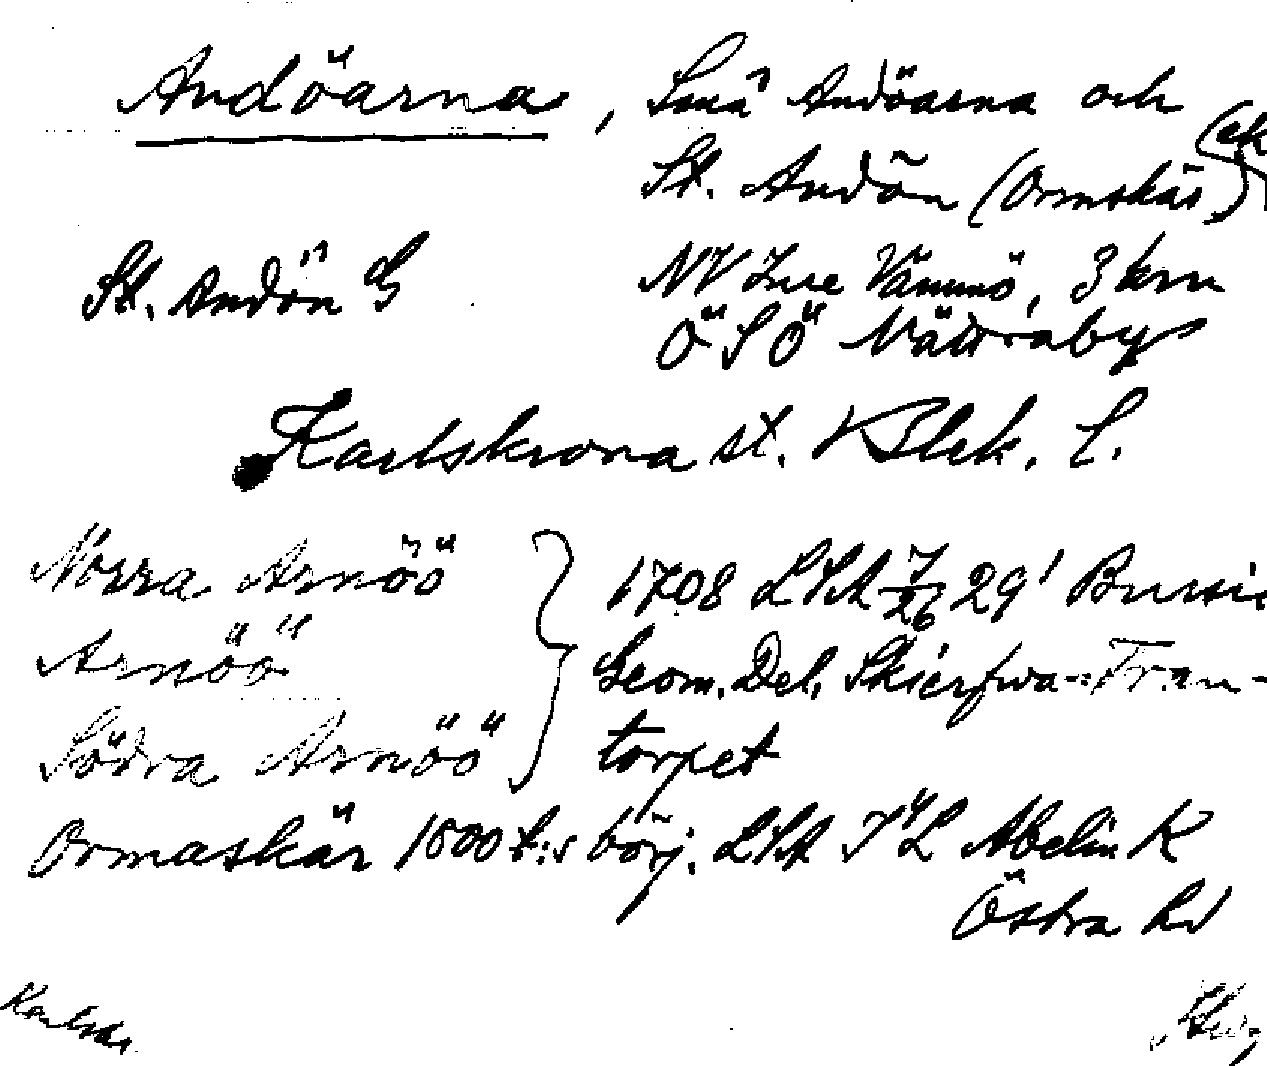 Andöarna, Små Andöarna och
St. Andön (Ormskär) (ek
St. Andön G
NV Inre Vämmö, 3 km
ÖSÖ Nättraby
Karlskrona st. Blek. l.
Norra Arnöö
Arnöö
Södra Arnöö
1708 LSA 7/26 29¹
Geom. Del. Skierfwa-Fran-
torpet
Ormaskär 1800t:s börj. LSA Abelin K
Östra hd
Karlskr.